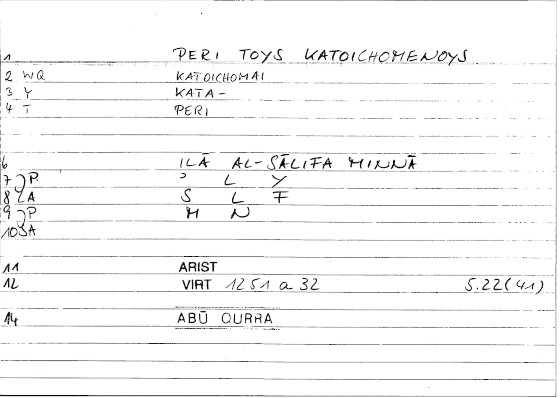 1 PERI TOYS KATOICHOMENOYS
2 WQ KATOICHOMAI
3 Y KATA-
4 T PERI
6 ILĀ AL-SĀLIFA MINNĀ
7 P ʾ L Y
8 A S L F
9 P M N
10 SA
11 ARIST
12 VIRT 1251 a 32 5.22(41)
14 ABŪ QURRA